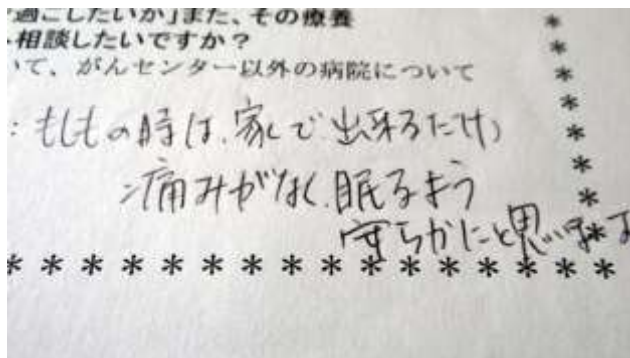 過ごしたいか」また、その療養
相談したいですか？
いて、がんセンター以外の病院について
：もしもの時は、家で出来るだけ
痛みがなく、眠るよう
安らかにと思います
* * * * * * * * * * * * * * * *